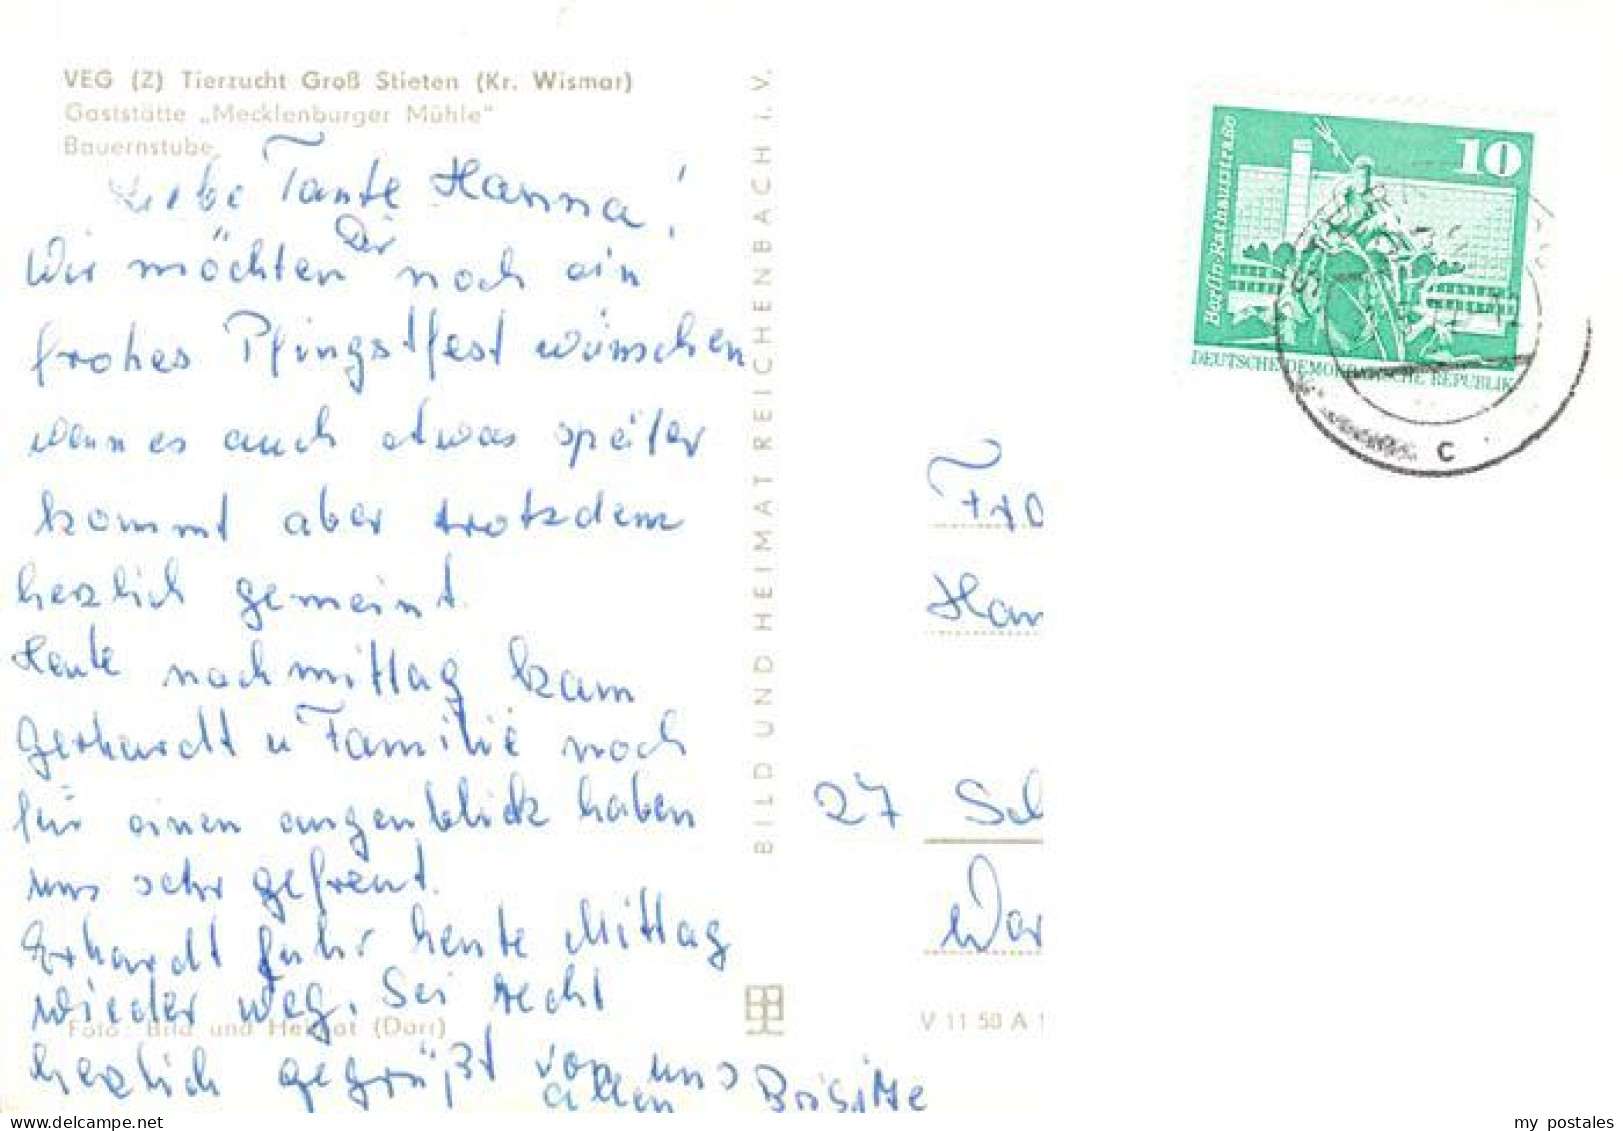 VEG (Z) Tierzucht Groß Stieten (Kr. Wismar)
Gaststätte „Mecklenburger Mühle"
Bauernstube
Liebe Tante Hanna!
Wir möchten Dir noch ein
frohes Pfingstfest wünschen
wenn es auch etwas später
kommt aber trotzdem
herzlich gemeint.
Heute nachmittag kam
Gerhardt u Familie noch
für einen augenblick haben
uns sehr gefreut.
Erhardt fuhr heute Mittag
wieder weg. Sei recht
Foto: Bild und Heimat (Dörr)
herzlich gegrüßt von uns
allen Brigitte
BILD UND HEIMAT REICHENBACH i. V.
Berlin-Rathausstraße
10
DEUTSCHE DEMOKRATISCHE REPUBLIK
c
Fra
Han
27 Sch
War
V 11 50 A 1
my postales